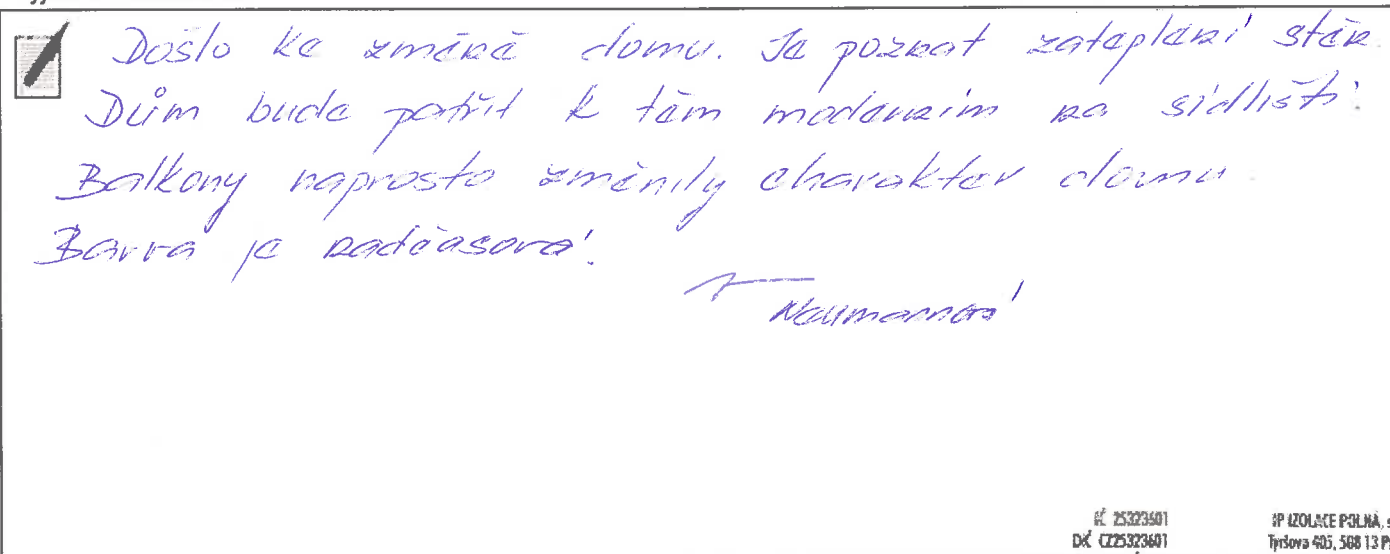 Došlo ke změně domu. Je poznat zateplení stěn.
Dům bude patřit k těm moderním na sídlišti.
Balkony naprosto změnily charakter domu.
Barva je nadčasová.
Neumannová
IČ 25323601
DIČ CZ25323601
IP IZOLACE POLNÁ, s
Tyršova 405, 588 13 P